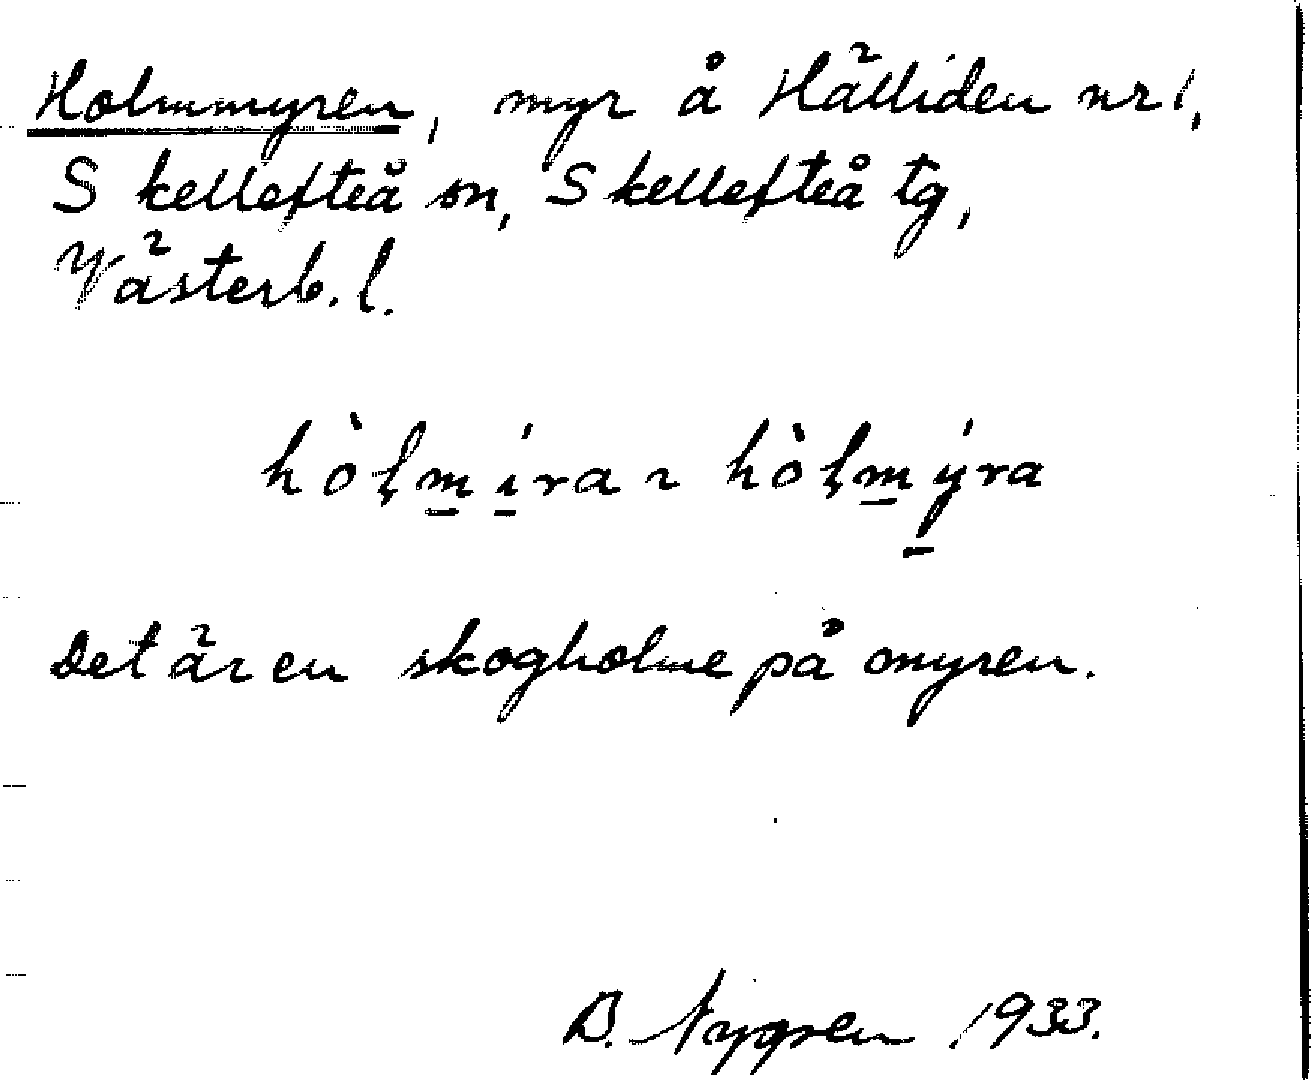 Holmmyren, myr å Hälliden nr 1,
Skellefteå sn, Skellefteå tg,
Västerb. l.
hòḷm̲í̲ra ~ hòḷm̲ý̲ra
Det är en skogholme på myren.
B. Nygren 1933.